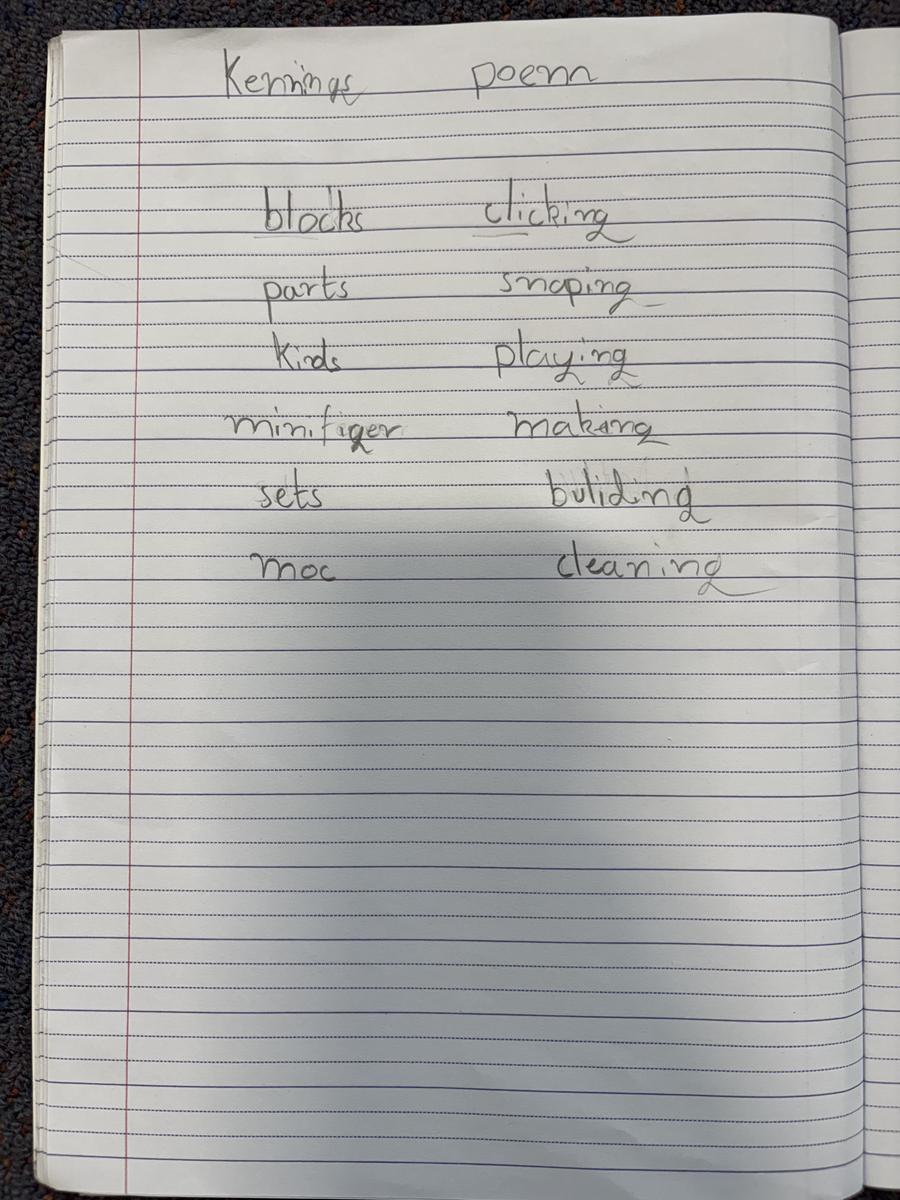 Kennings poem
blocks clicking
parts snaping
kids playing
minifiger making
sets buliding
moc cleaning